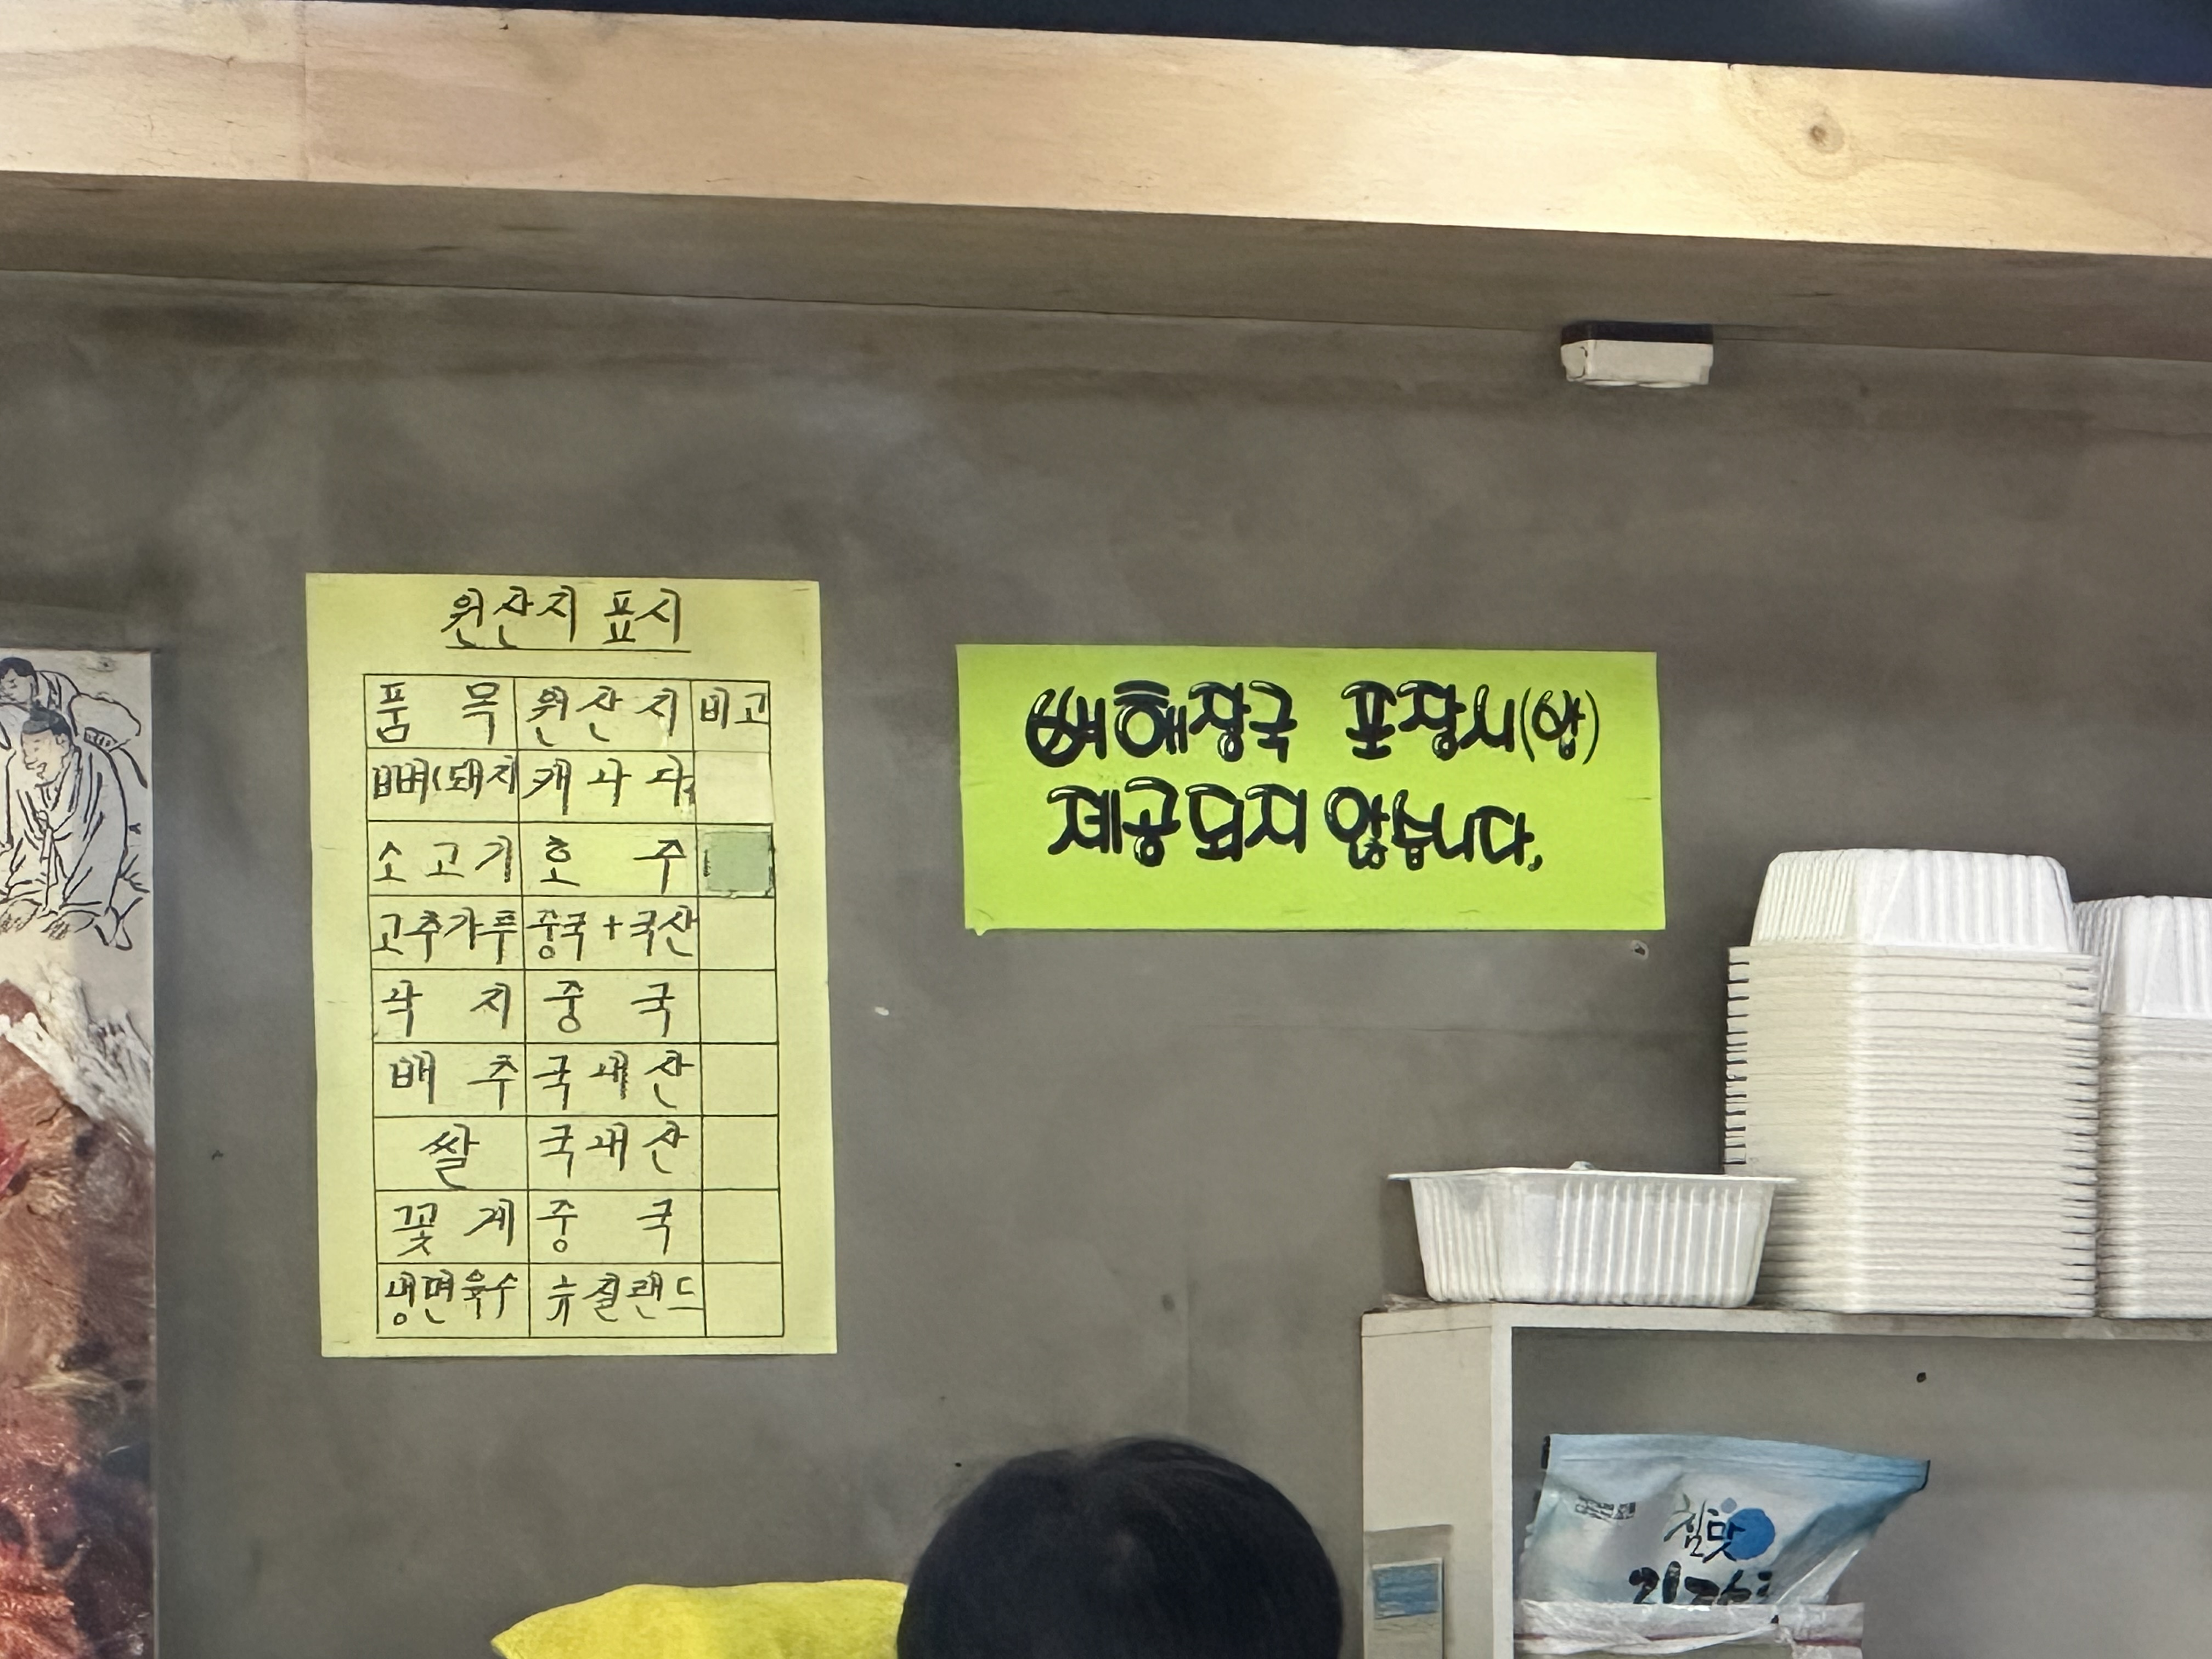 원산지 표시
품 목 원산지 비고
뼈(돼지 캐나다
소고기 호 주
고추가루 중국+국산
낙 지 중 국
배 추 국내산
쌀 국내산
꽃 게 중 국
냉면육수 뉴질랜드
뼈해장국 포장시(밥)
제공되지 않습니다.
참맛